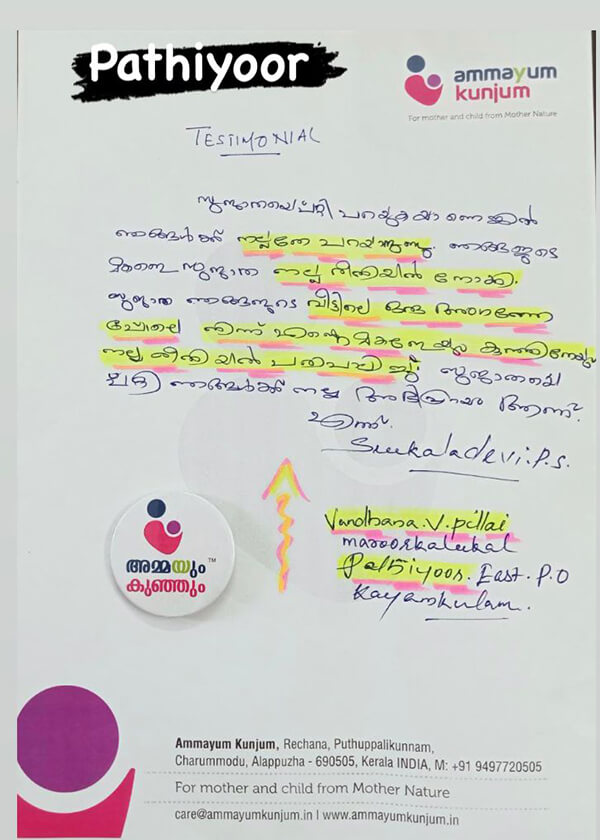 Pathiyoor
ammayum
kunjum
For mother and child from Mother Nature
TESTIMONIAL
സുജാതയെപ്പറ്റി പറയുകയാണെങ്കിൽ
ഞങ്ങൾക്ക് നല്ലതേ പറയാനുള്ളു. ഞങ്ങളുടെ
മകനെ സുജാത നല്ല രീതിയിൽ നോക്കി.
സുജാത ഞങ്ങളുടെ വീട്ടിലെ ഒരു അംഗത്തെ
പ്പോലെ നിന്ന് എന്റെ മകളേയും കുഞ്ഞിനേയും
നല്ല രീതിയിൽ പരിചരിച്ചു. സുജാതയെ
പറ്റി ഞങ്ങൾക്ക് നല്ല അഭിപ്രായം ആണ്.
എന്ന്.
Sreekaladevi.P.S.
Vandhana.V.pillai
Pathiyoor. East. P.O
Kayamkulam.
അമ്മയും TM
കുഞ്ഞും
Ammayum Kunjum, Rechana, Puthuppalikunnam,
Charummodu, Alappuzha - 690505, Kerala INDIA, M: +91 9497720505
For mother and child from Mother Nature
care@ammayumkunjum.in I www.ammayumkunjum.in